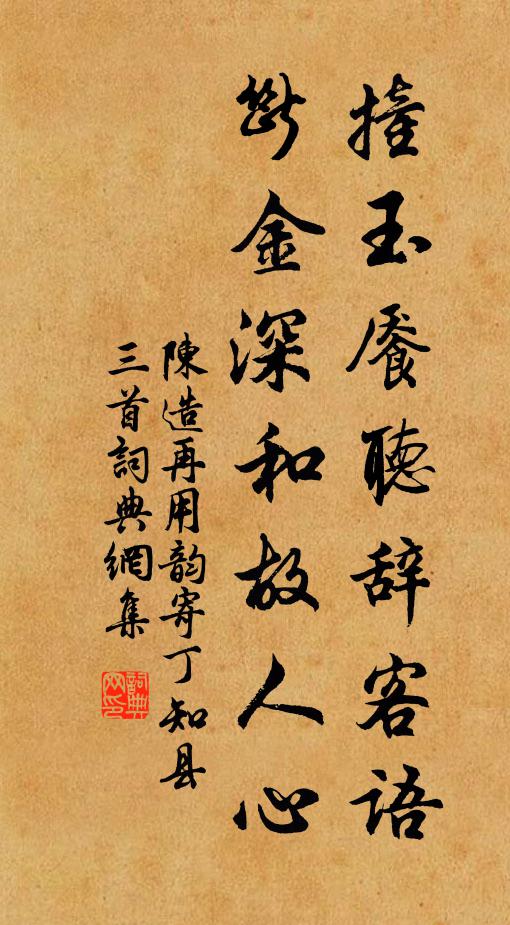 撞玉餍聽辞客語
断金深和故人心
陳造再用韵寄丁知县
三首詞典網集
詞典网印